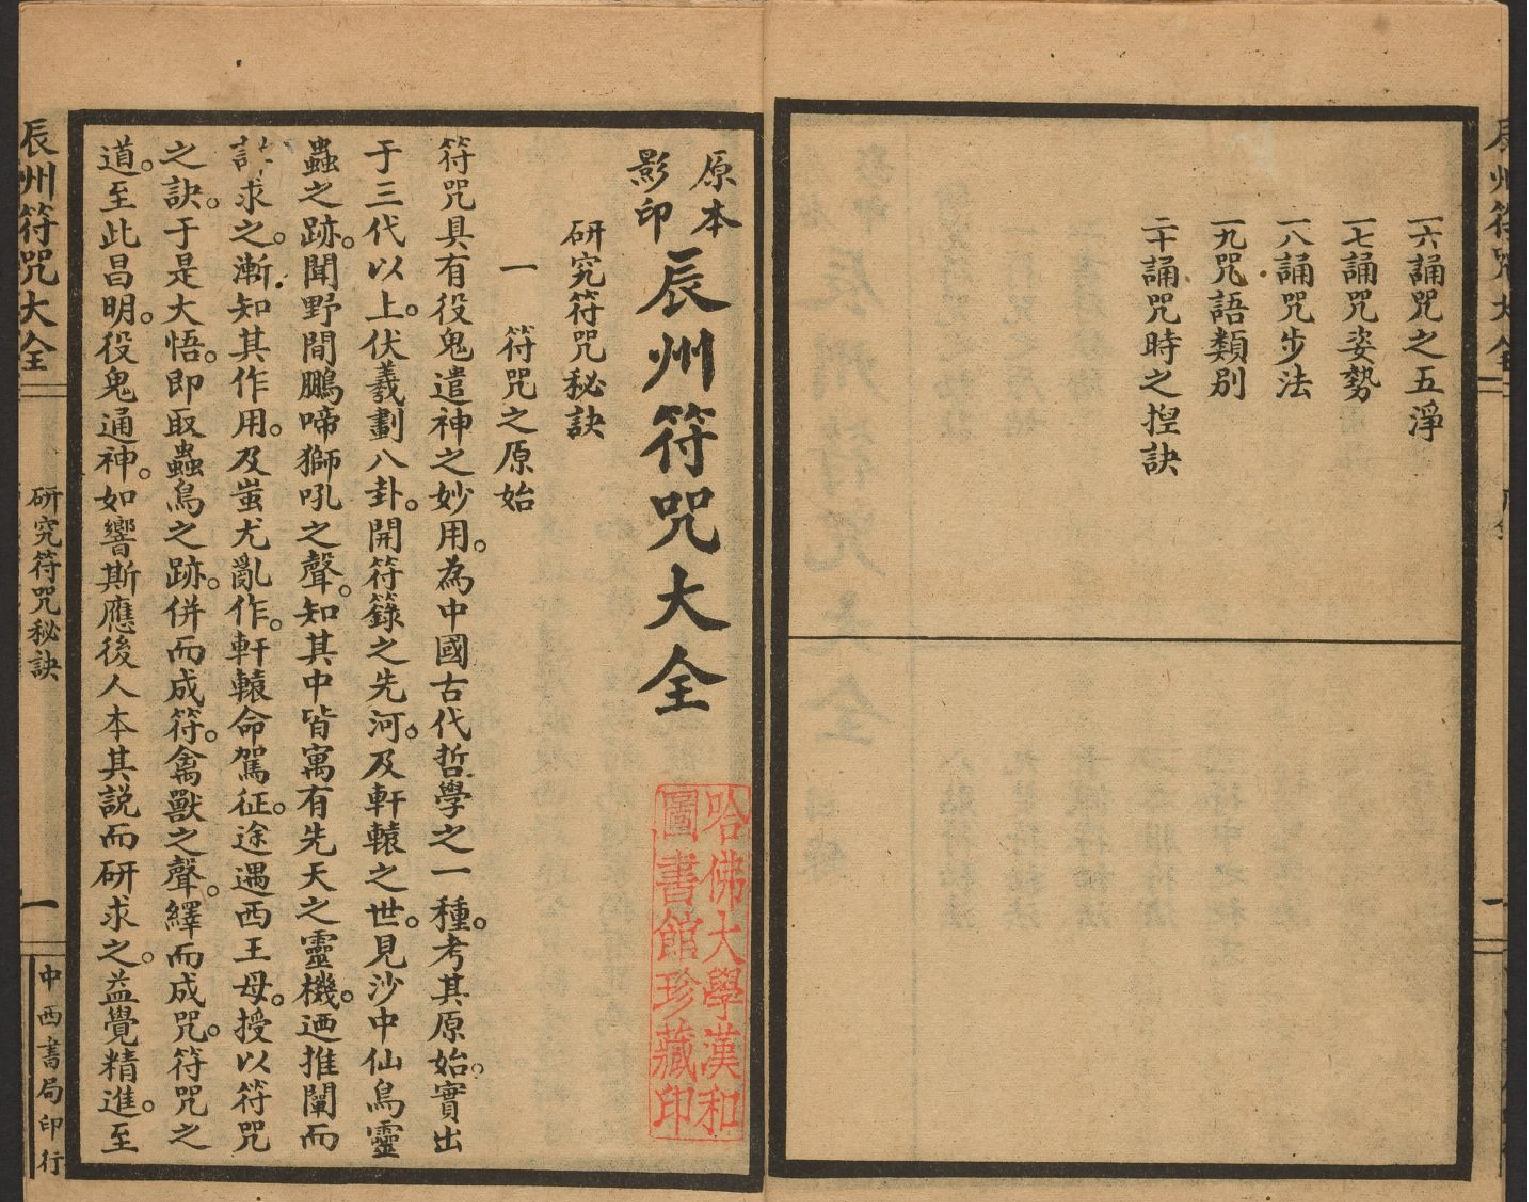 辰州符咒大全
一
一六誦咒之五淨
一七誦咒姿勢
一八誦咒步法
一九咒語類別
二十誦咒時之揑訣
原本
影印
辰州符咒大全
哈佛大學漢和
圖書館珍藏印
研究符咒秘訣
一 符咒之原始
符咒具有役鬼遣神之妙用。為中國古代哲學之一種。考其原始。實出
于三代以上。伏羲劃八卦。開符籙之先河。及軒轅之世。見沙中仙鳥靈
蟲之跡。聞野間鵬啼獅吼之聲。知其中皆寓有先天之靈機。迺推闡而
求之。漸知其作用。及蚩尤亂作。軒轅命駕征。途遇西王母。授以符咒
之訣。于是大悟。即取蟲鳥之跡。併而成符。禽獸之聲。繹而成咒。符咒之
道。至此昌明。役鬼通神。如響斯應後人本其説而研求之。益覺精進。至
辰州符咒大全
研究符咒秘訣
一
中西書局印行